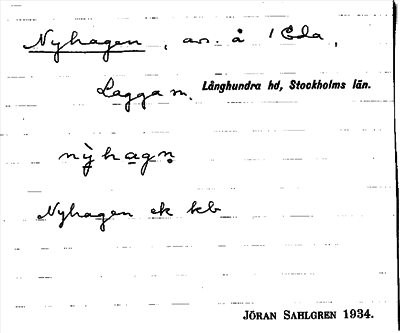 Nyhagen, av. å 1 Eda,
Lagga sn. Långhundra hd, Stockholms län.
nỳhagn̥
Nyhagen ek kb
JÖRAN SAHLGREN 1934.